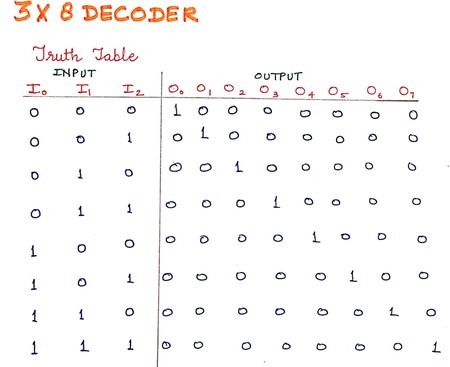 3 X 8 DECODER
Truth Table
INPUT OUTPUT
I₀ I₁ I₂ O₀ O₁ O₂ O₃ O₄ O₅ O₆ O₇
0 0 0 1 0 0 0 0 0 0 0
0 0 1 0 1 0 0 0 0 0 0
0 1 0 0 0 1 0 0 0 0 0
0 1 1 0 0 0 1 0 0 0 0
1 0 0 0 0 0 0 1 0 0 0
1 0 1 0 0 0 0 0 1 0 0
1 1 0 0 0 0 0 0 0 1 0
1 1 1 0 0 0 0 0 0 0 1